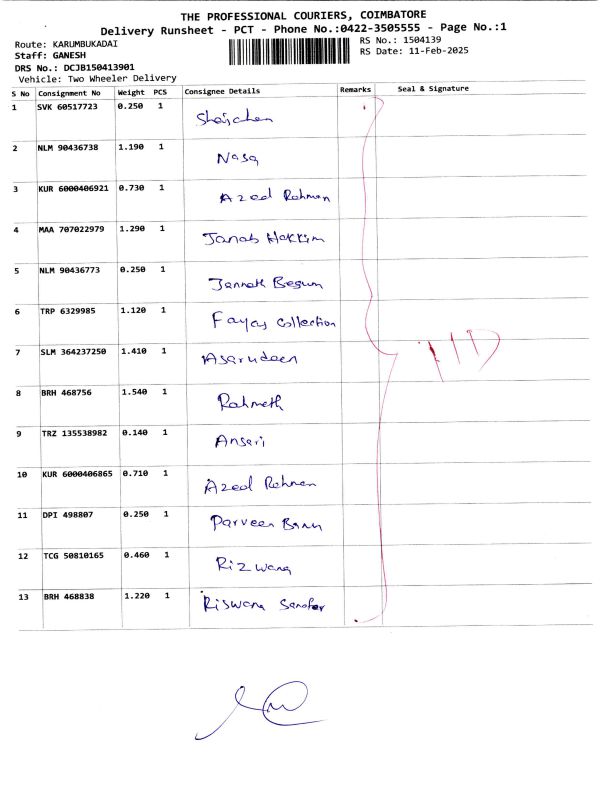 THE PROFESSIONAL COURIERS, COIMBATORE
Delivery Runsheet - PCT - Phone No.:0422-3505555 - Page No.:1
Route: KARUMBUKADAI
RS No.: 1504139
Staff: GANESH
RS Date: 11-Feb-2025
DRS No.: DCJB150413901
Vehicle: Two Wheeler Delivery
S No Consignment No Weight PCS Consignee Details Remarks Seal & Signature
1 SVK 60517723 0.250 1
2 NLM 90436738 1.190 1 Nasa
3 KUR 6000406921 0.730 1 Azad Rahman
4 MAA 707022979 1.290 1 Janab Hakkim
5 NLM 90436773 0.250 1 Jannath Begum
6 TRP 6329985 1.120 1 Fayas Collection
7 SLM 364237250 1.410 1 Asarudeen
8 BRH 468756 1.540 1 Rahmath
9 TRZ 135538982 0.140 1 Ansari
10 KUR 6000406865 0.710 1 Azad Rahman
11 DPI 498807 0.250 1 Parveen Banu
12 TCG 50810165 0.460 1 Rizwana
13 BRH 468838 1.220 1 Riswana